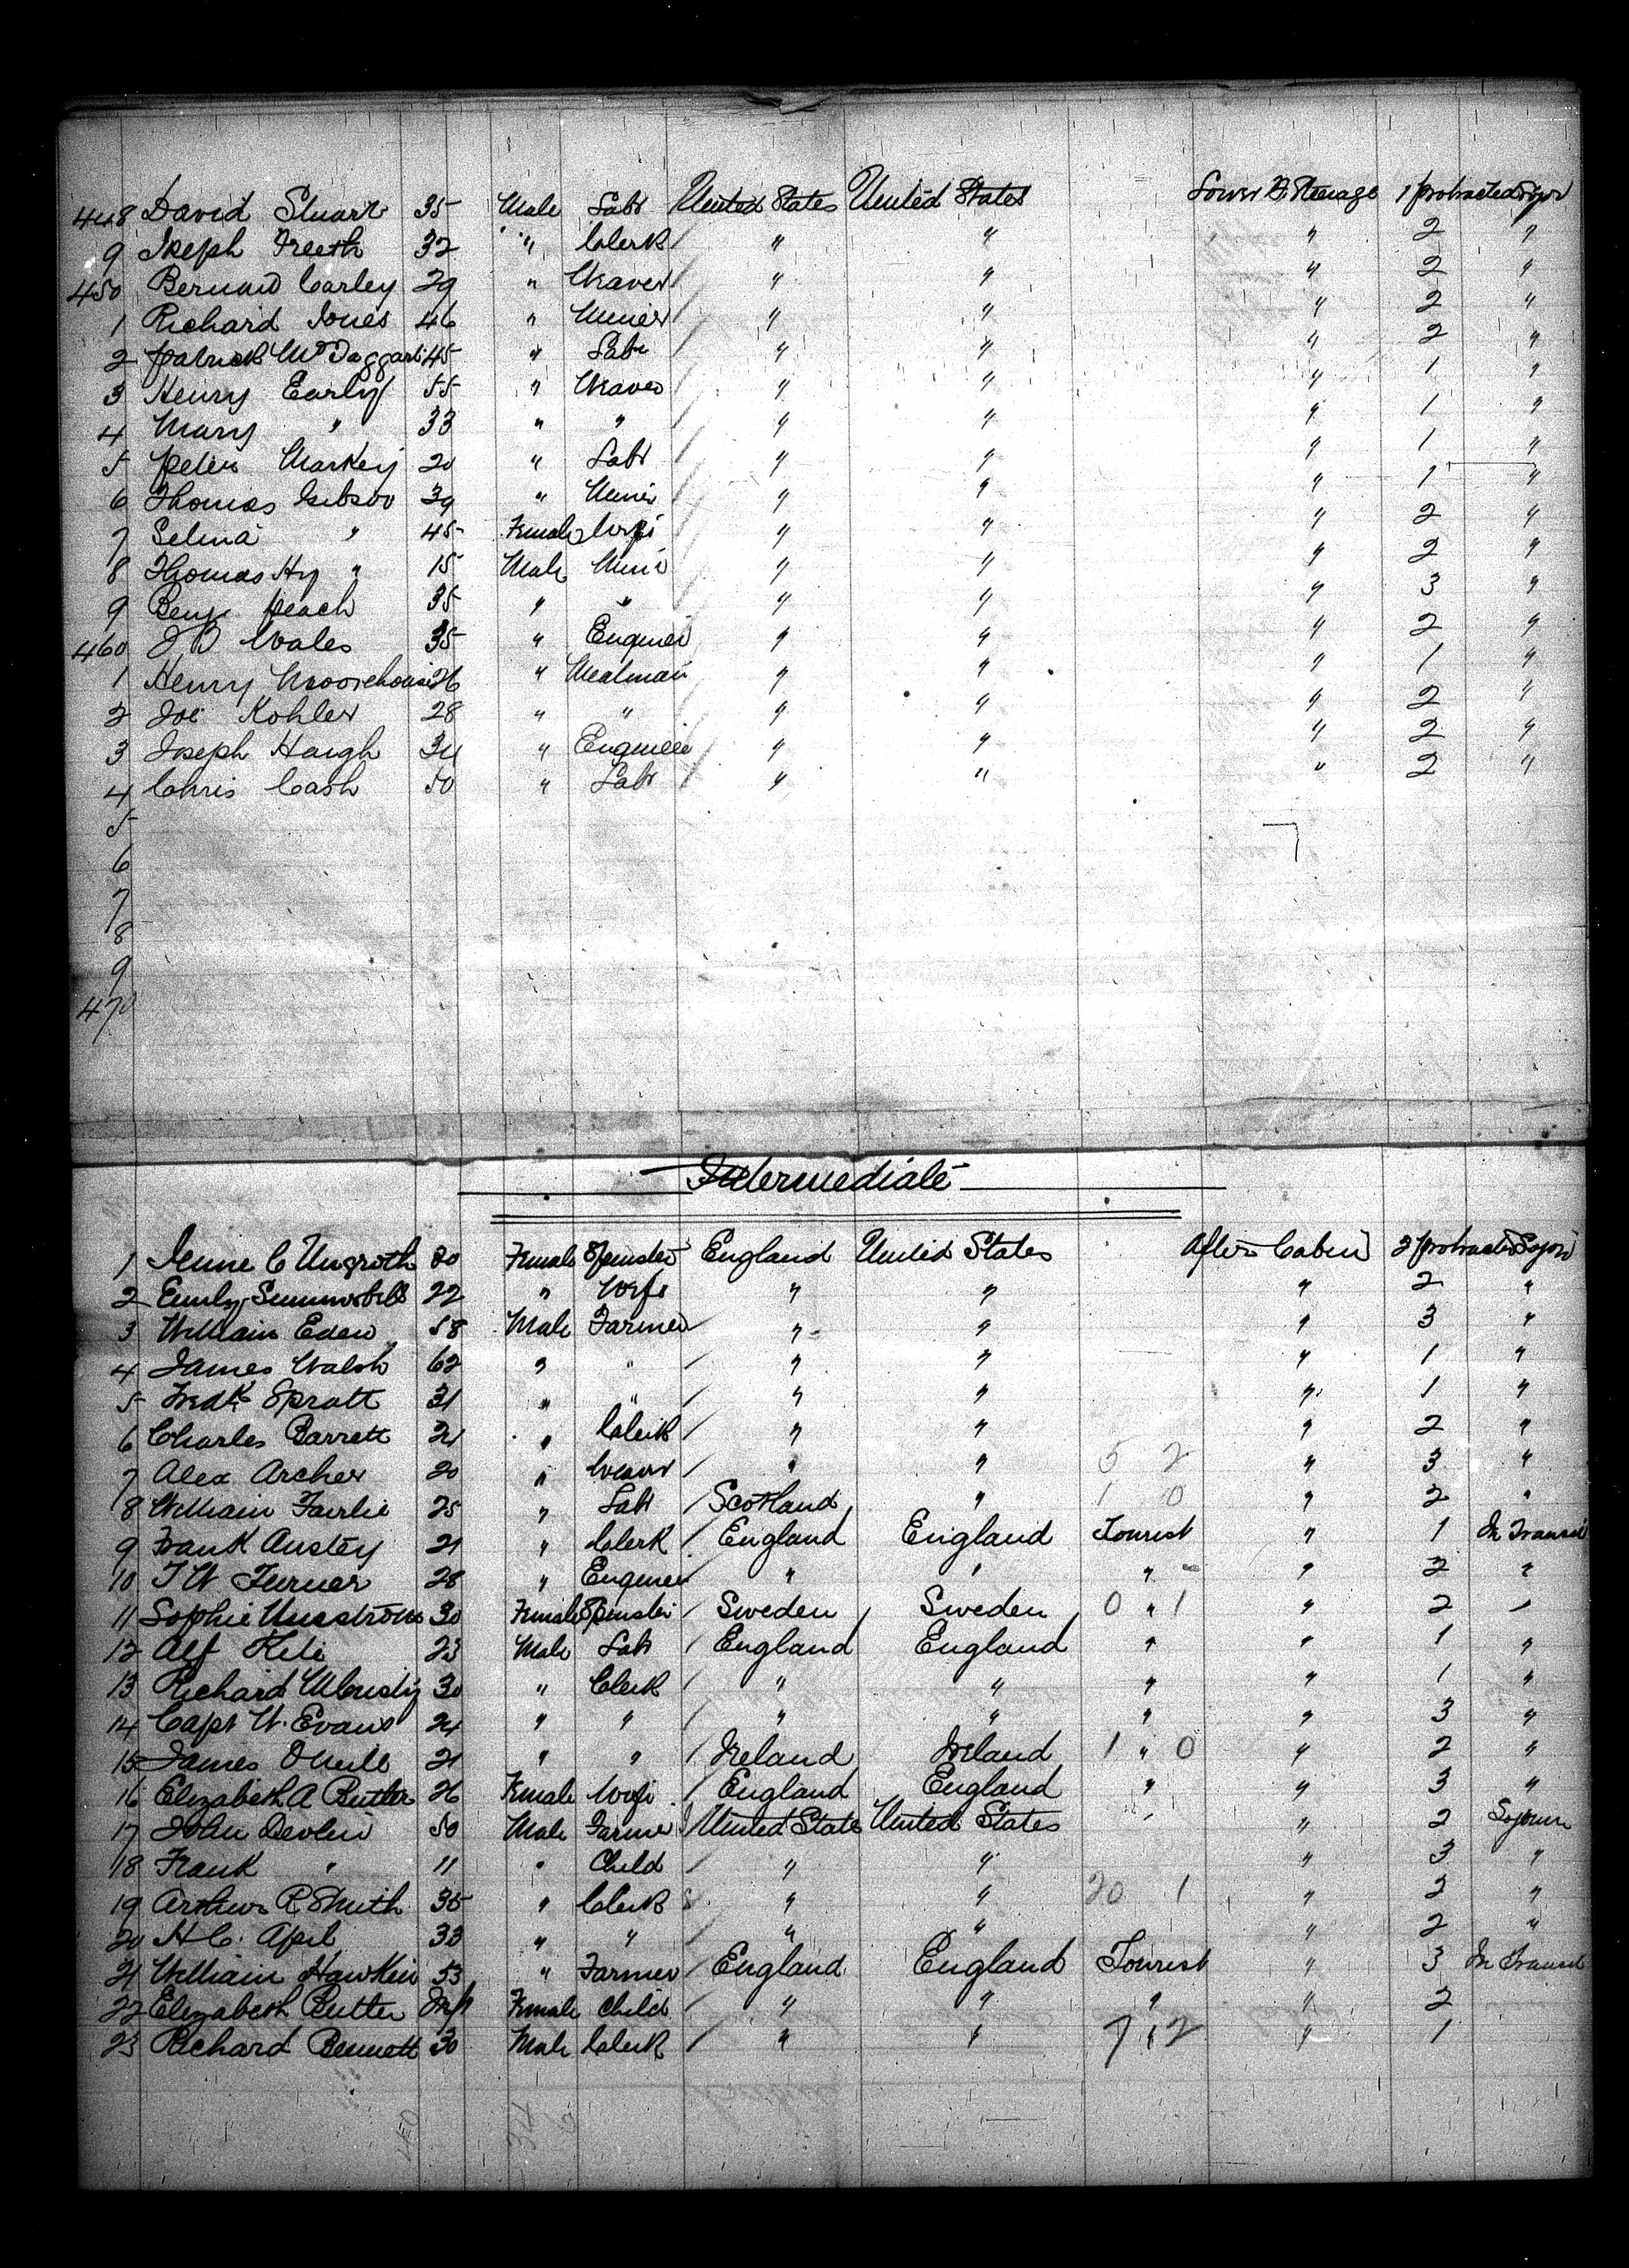 448 David Stuart 35 Male Labr United States United States Lower B. Steerage 1 protracted Sojor
9 Joseph Freeth 32 " Clerk " " " 2 "
450 Bernard Carley 29 " Weaver " " " 2 "
1 Richard Jones 46 " Miner " " " 2 "
2 Patrick McTaggart 45 " Labr " " " 2 "
3 Henry Early 55 " Weaver " " " 1 "
4 Mary " 33 " " " " " 1 "
5 Peter Markey 20 " Labr " " " 1 "
6 Thomas Gibson 39 " Miner " " " 1 "
7 Selina " 45 Female Wife " " " 2 "
8 Thomas Hy " 15 Male Miner " " " 2 "
9 Benj Peach 35 " " " " " 3 "
460 J B Wales 35 " Engineer " " " 2 "
1 Henry Moorehouse 26 " Mealman " " " 1 "
2 Joe Kohler 28 " " " " " 2 "
3 Joseph Haigh 34 " Engineer " " " 2 "
4 Chris Cash 50 " Labr " " " 2 "
5
6
7
8
9
470
Intermediate
1 C 20 Female Spinster England United States After Cabin 2 protracted Sojor
2 Emily Summerbell 22 " Wife " " " 2 "
3 William Eden 58 Male Farmer " " " 3 "
4 James Walsh 62 " " " " " 1 "
5 Fredk Spratt 31 " " " " " 1 "
6 Charles Barrett 21 " Clerk " " " 2 "
7 Alex Archer 20 " Weaver " " 5 2 " 3 "
8 William Fairlie 25 " Labr Scotland " 1 0 " 2 "
9 Frank Anstey 21 " Clerk England England Tourist " 1 In Transit
10 T W Turner 28 " Engineer " " " " 2 "
11 Sophie 30 Female Spinster Sweden Sweden 0 " 1 " 2 "
12 Alf 23 Male Labr England England " " 1 "
13 Richard 30 " Clerk " " " " 1 "
14 Capt W. Evans 24 " " " " " " 3 "
15 James ONeill 21 " " Ireland Ireland 1 " 0 " 2 "
16 Elizabeth A Butler 26 Female Wife England England " " 3 "
17 John Devlin 50 Male Farmer United States United States " 2 Sojourn
18 Frank " 11 " Child " " " 3 "
19 Arthur R Smith 35 " Clerk " " 20 1 " 2 "
20 H C. April 33 " " " " " 2 "
21 William Hawkin 53 " Farmer England England Tourist " 3 In Transit
22 Elizabeth Butler Inf Female Child " " " " 2
23 Richard Bennett 30 Male Clerk " " 7 " 2 " 1